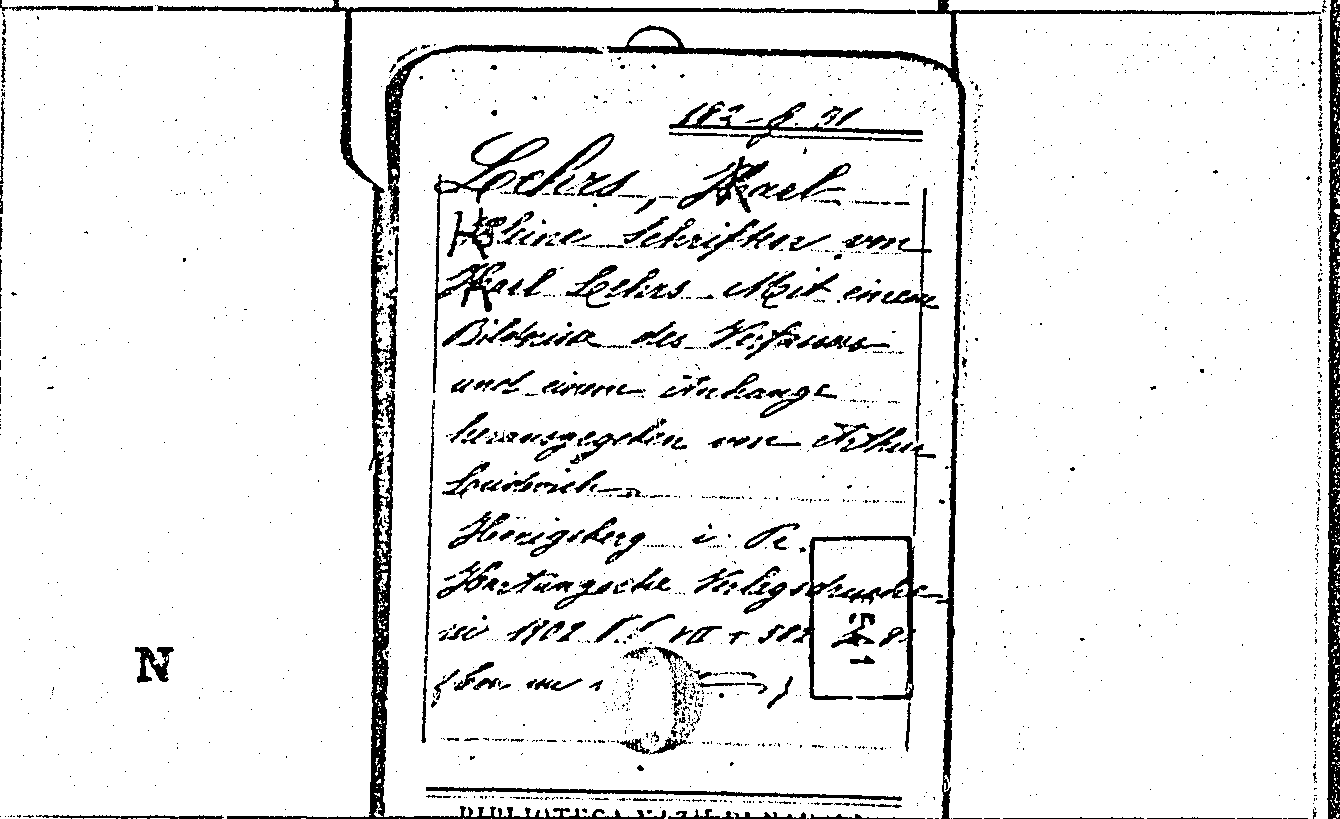 182-f. 31
Lehrs, Karl
Kleine Schriften von
Karl Lehrs. Mit einem
Bildnisse des Verfassers
und einem Anhange
herausgegeben von Arthur
Ludwich
Königsberg i. Pr.
Hartungsche Verlagsdrucke-
rei 1902 VII + 582
N
BIBLIOTECA